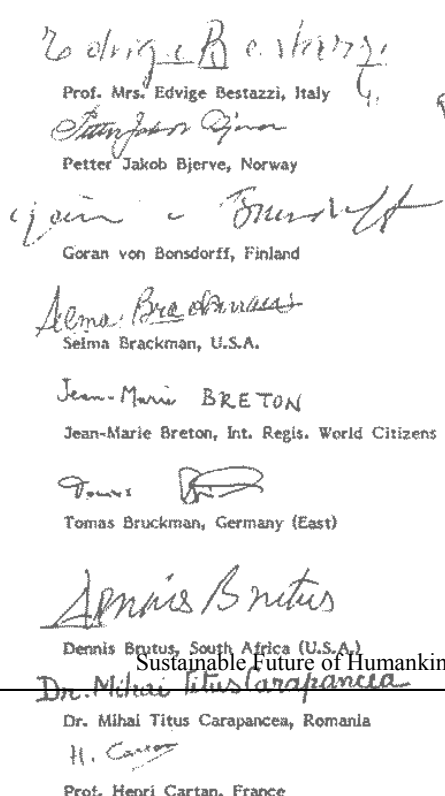 Edvige Bestazzi
Prof. Mrs. Edvige Bestazzi, Italy
Petter Jakob Bjerve
Petter Jakob Bjerve, Norway
Göran v Bonsdorff
Goran von Bonsdorff, Finland
Selma Brackman
Selma Brackman, U.S.A.
Jean-Marie BRETON
Jean-Marie Breton, Int. Regis. World Citizens
Tomas
Tomas Bruckman, Germany (East)
Dennis Brutus
Dennis Brutus, South Africa (U.S.A.)
Sustainable Future of Humankin
Dr. Mihai Titus Carapancea
Dr. Mihai Titus Carapancea, Romania
H. Cartan
Prof. Henri Cartan, France